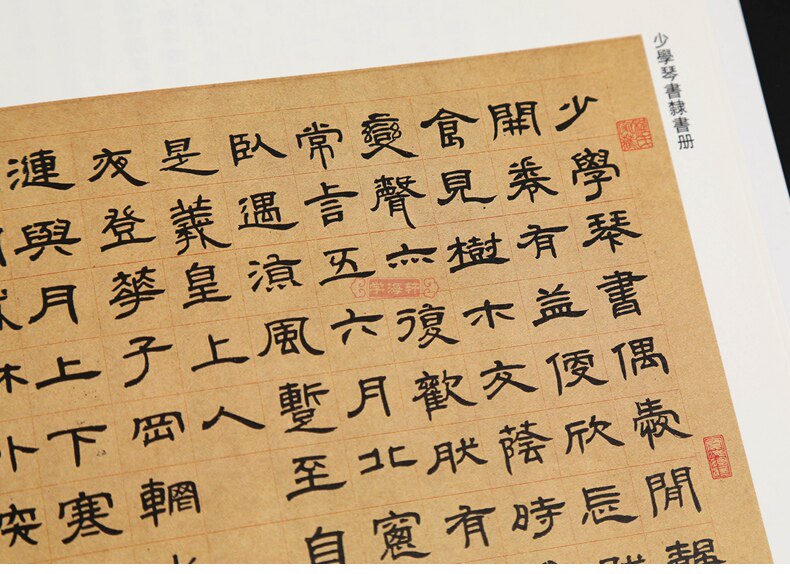 少學琴書隸書册
少學琴書偶愛閒
開卷有益便欣
食見樹木交蔭時
變聲亦復歡肰有
常言五六月北窓
臥遇涼風暫至自
是羲皇上人
夜登華子岡輞
漣與月上下寒
学海軒